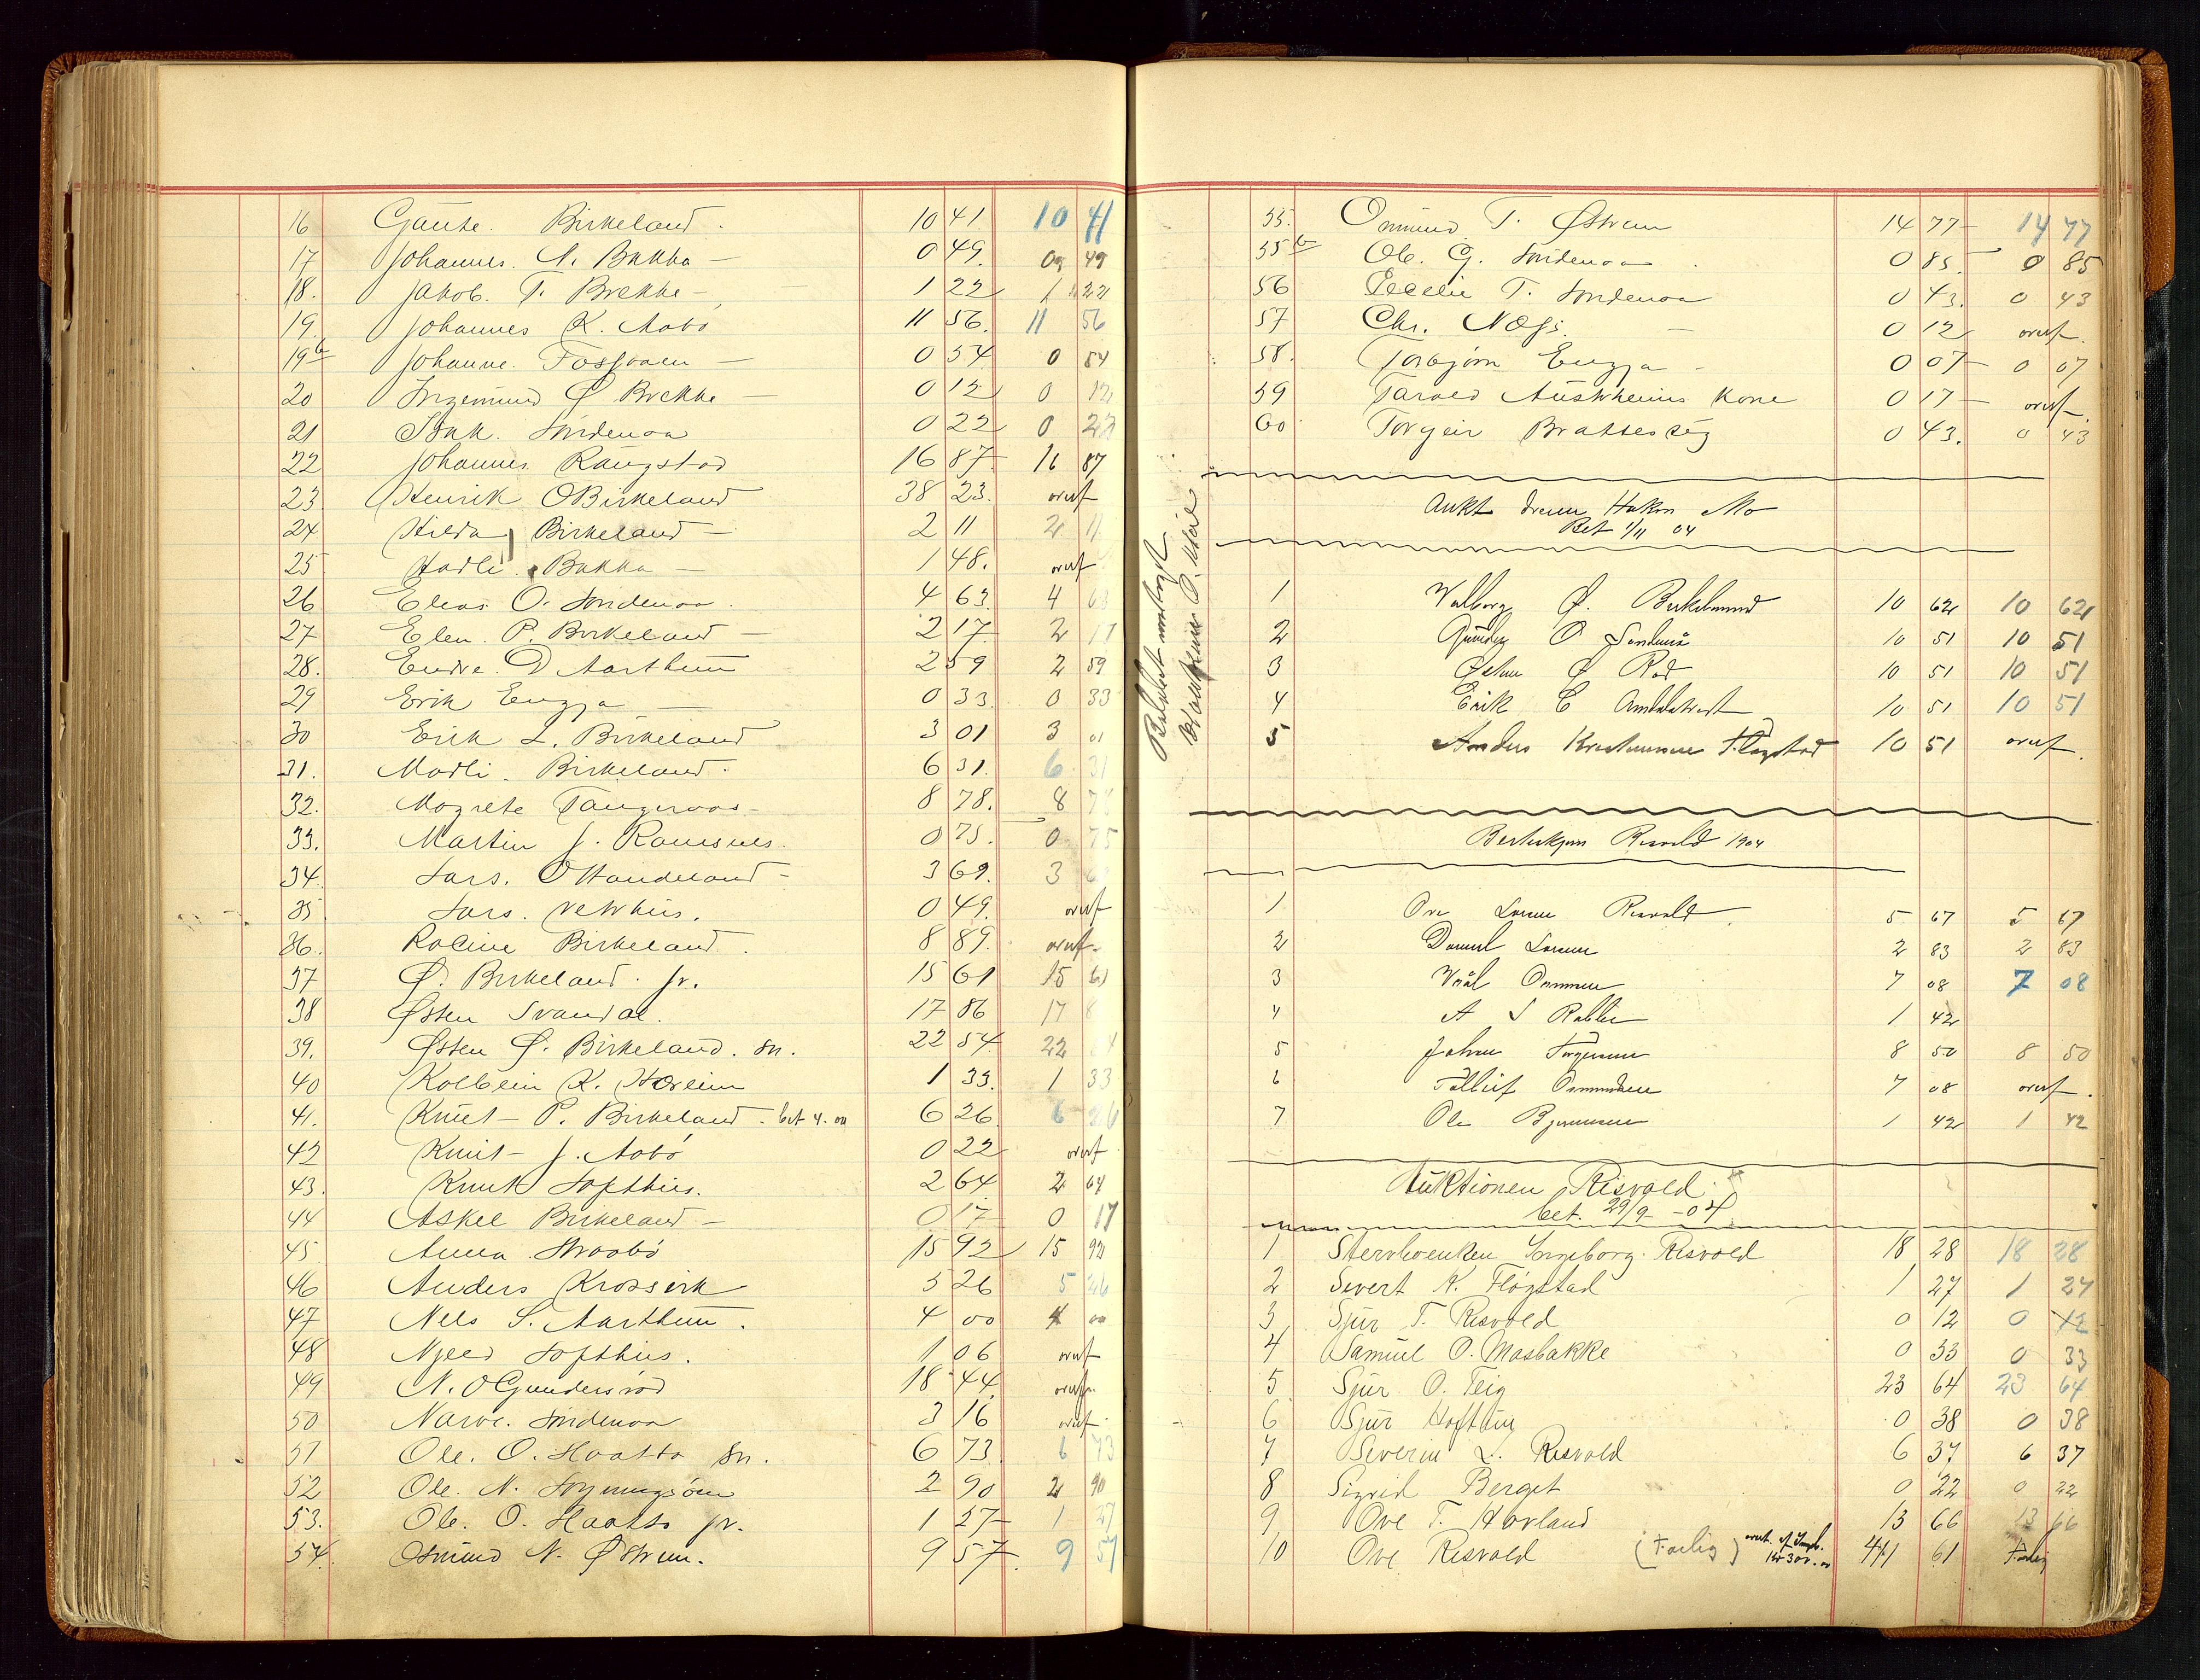 16 Gaute. Birkeland. 10 41 10 41
17 Johannes. N. Bakka — 0 49. 0 49
18. Jakob. T. Brekke — 1 22 1 22
19 Johannes K. Aabö 11 56. 11 56
19b Johanne. Fosstraen — 0 54 0 54
20 Ingemund Ø Brekke — 0 12 0 12
21 Isak. Söndenaa 0 22 0 22
22 Johannes Raugstad 16 87 16 87
23 Henrik O Birkeland 38 23. overf
24 Hilda Birkeland — 2 11 2 11
25 Hadle Bakka — 1 48. overf
26 Elias O. Söndenaa. 4 63 4 63
27 Elen. P. Birkeland — 2 17 2 17
28. Endre. D Aarthun 2 59 2 59
29 Erik Engja — 0 33. 0 33
30 Erik L. Birkeland 3 01 3 01
31. Madli. Birkeland. 6 31. 6 31
32. Magrete Tangeraas — 8 78. 8 78
33. Martin J. Ramsnes. 0 75. 0 75
34. Lars. O Handeland — 3 69. 3 69
35 Lars. Vetrhus. 0 49. overf
36. Racine Birkeland. 8 89. overf.
37 Ø. Birkeland. jr. 15 61 15 61
38 Østen Svandal. 17 86 17 8
39. Østen Ø. Birkeland. sn. 22 54 22 54
40 Kolbein K. Høreim 1 33. 1 33
41. Knut P. Birkeland — bet 4.00 6 26 6 26
42 Knut J. Aabö 0 22 overf
43. Knut Softhus. 2 64 2 64
44 Askel Birkeland — 0 17 0 17
45 Anna Straabö 15 92 15 92
46 Anders Krossvik 5 26 5 26
47 Nels S. Aarthun. 4 00 4 00
48 Njeld Softhus. 1 06 overf
49 N. O Gundersrod 18 44. overf.
50 Narve. Söndenaa 3 16 overf.
51 Ole. O. Haatto sn. 6 73. 6 73
52 Ole. N. 2 90 2 90
53. Ole. O. Haatto jr. 1 27 1 27
54. Osmund N. Østrem. 9 57. 9 57
55. Osmund T. Østrem 14 77 14 77
55b Ole. G. Söndenaa. 0 85. 0 85
56 T. Söndenaa 0 43. 0 43
57 Chr. Næss. — 0 12 overf.
58. Torbjörn Engja — 0 07 0 07
59 Tarald Austrheims Kone 0 17 overf.
60 Torgeir Bratteteig 0 43. 0 43
Aukt Hakon Mo
Bet 1/11 04
1 Valborg Ø. Birkeland 10 62 10 62
2 O Söndenå 10 51 10 51
3 Østen Ø Rød 10 51 10 51
4 Erik E 10 51 10 51
5 Anders Fløgstad 10 51 overf.
Risvold 1904
1 Ove Larsen Risvold 5 67 5 67
2 Daniel Larsen 2 83 2 83
3 7 08 7 08
4 A S 1 42
5 Johan Torgersen 8 50 8 50
6 Osmundsen 7 08 overf.
7 Ole Bjørnsen 1 42 1 42
Auktionen Risvold.
bet. 29/9 -04
1 Ingeborg Risvold 18 28 18 28
2 Severt N. Fløgstad 1 27 1 27
3 Sjur T. Risvold 0 12 0 12
4 Samuel O. Masbakke 0 33 0 33
5 Sjur O. Teig 23 64 23 64
6 Sjur Hoftun 0 38 0 38
7 Severin L. Risvold 6 37 6 37
8 Sigrid Berget 0 22 0 22
9 Ove T. Havland 13 66 13 66
10 Ove Risvold (Farlig) 411 61 Farlig